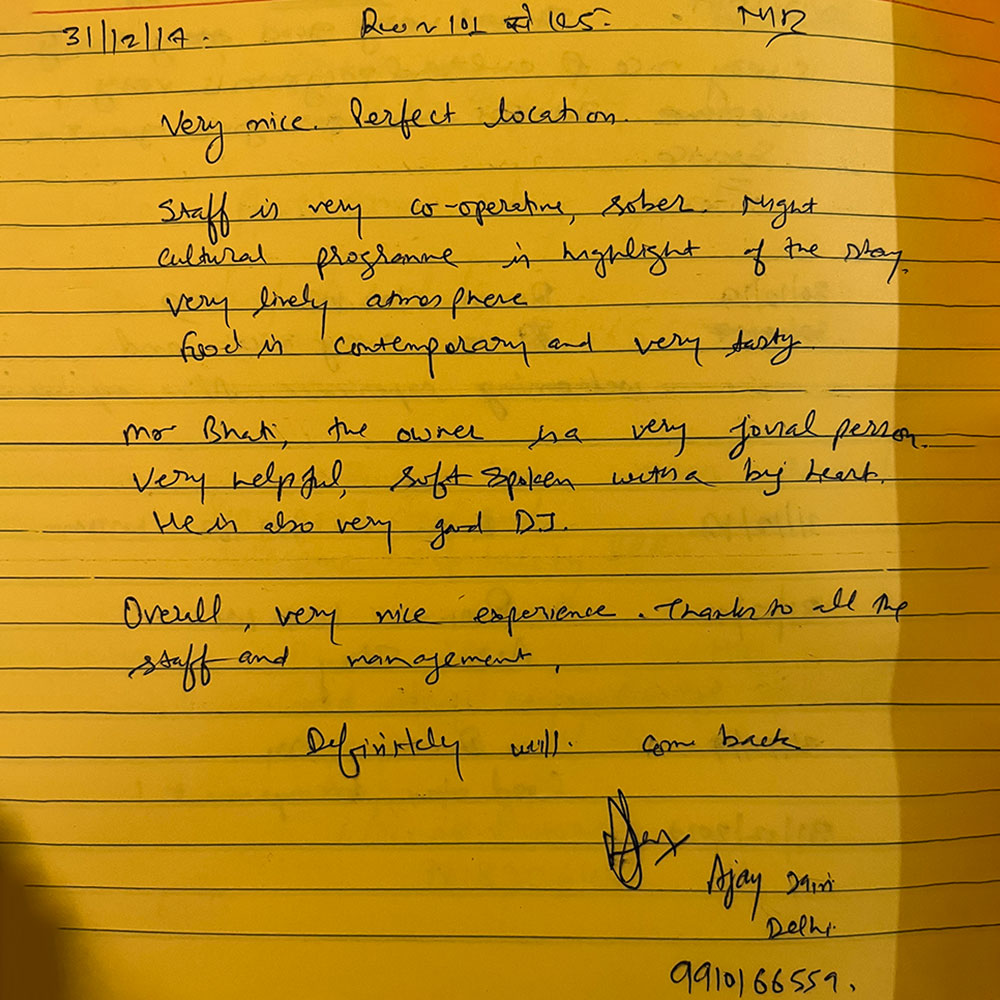 31/12/17.
101 से 105.
Very nice. Perfect location.
Staff is very co-operative, sober. Night
cultural programme is highlight of the stay.
very lively atmosphere
Food is contemporary and very tasty.
Mr Bhati, the owner is a very jovial person.
Very helpful, soft spoken with a big heart.
He is also very good D.J.
Overall, very nice experience. Thanks to all the
staff and management,
Definitely will. come back
Ajay Jain
Delhi
9910166559.